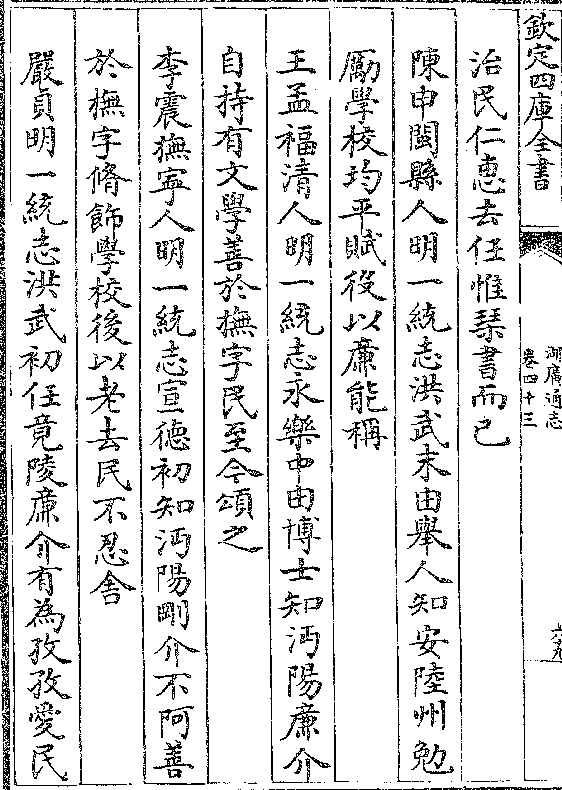 欽定四庫全書
湖廣通志
卷四十三
六九
治民仁恵去任惟琴書而已
陳申閩縣人明一統志洪武末由舉人知安陸州勉
勵學校均平賦役以㢘能稱
王孟福清人明一統志永樂中由博士知沔陽㢘介
自持有文學善於撫字民至今頌之
李震撫寧人明一統志宣德初知沔陽剛介不阿善
於撫字脩飾學校後以老去民不忍舍
嚴貞明一統志洪武初任竟陵㢘介有為孜孜愛民